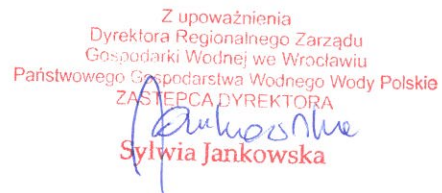 Z upoważnienia
Dyrektora Regionalnego Zarządu
Gospodarki Wodnej we Wrocławiu
Państwowego Gospodarstwa Wodnego Wody Polskie
ZASTĘPCA DYREKTORA
Jankowska
Sylwia Jankowska